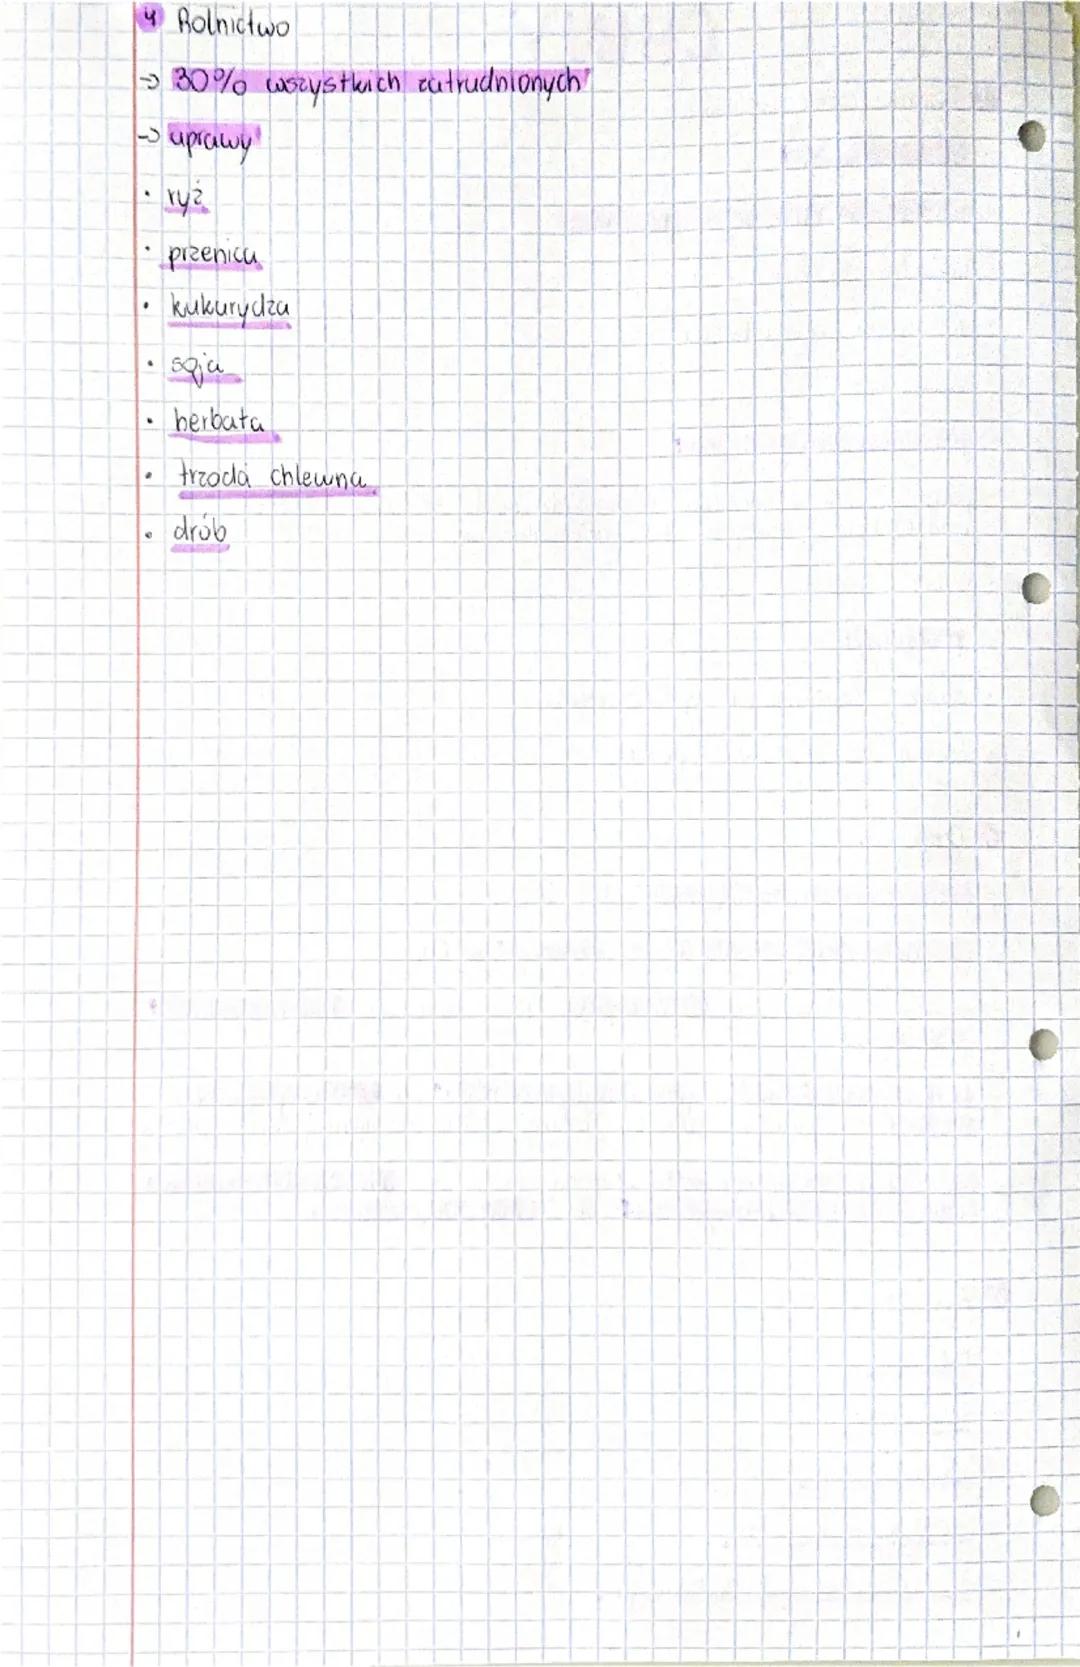 4 Rolnictwo
→ 30% wszystkich zatrudnionych
→ uprawy
• ryż
• przenica
• kukurydza
• soja
• herbata
• trzoda chlewna
• drób